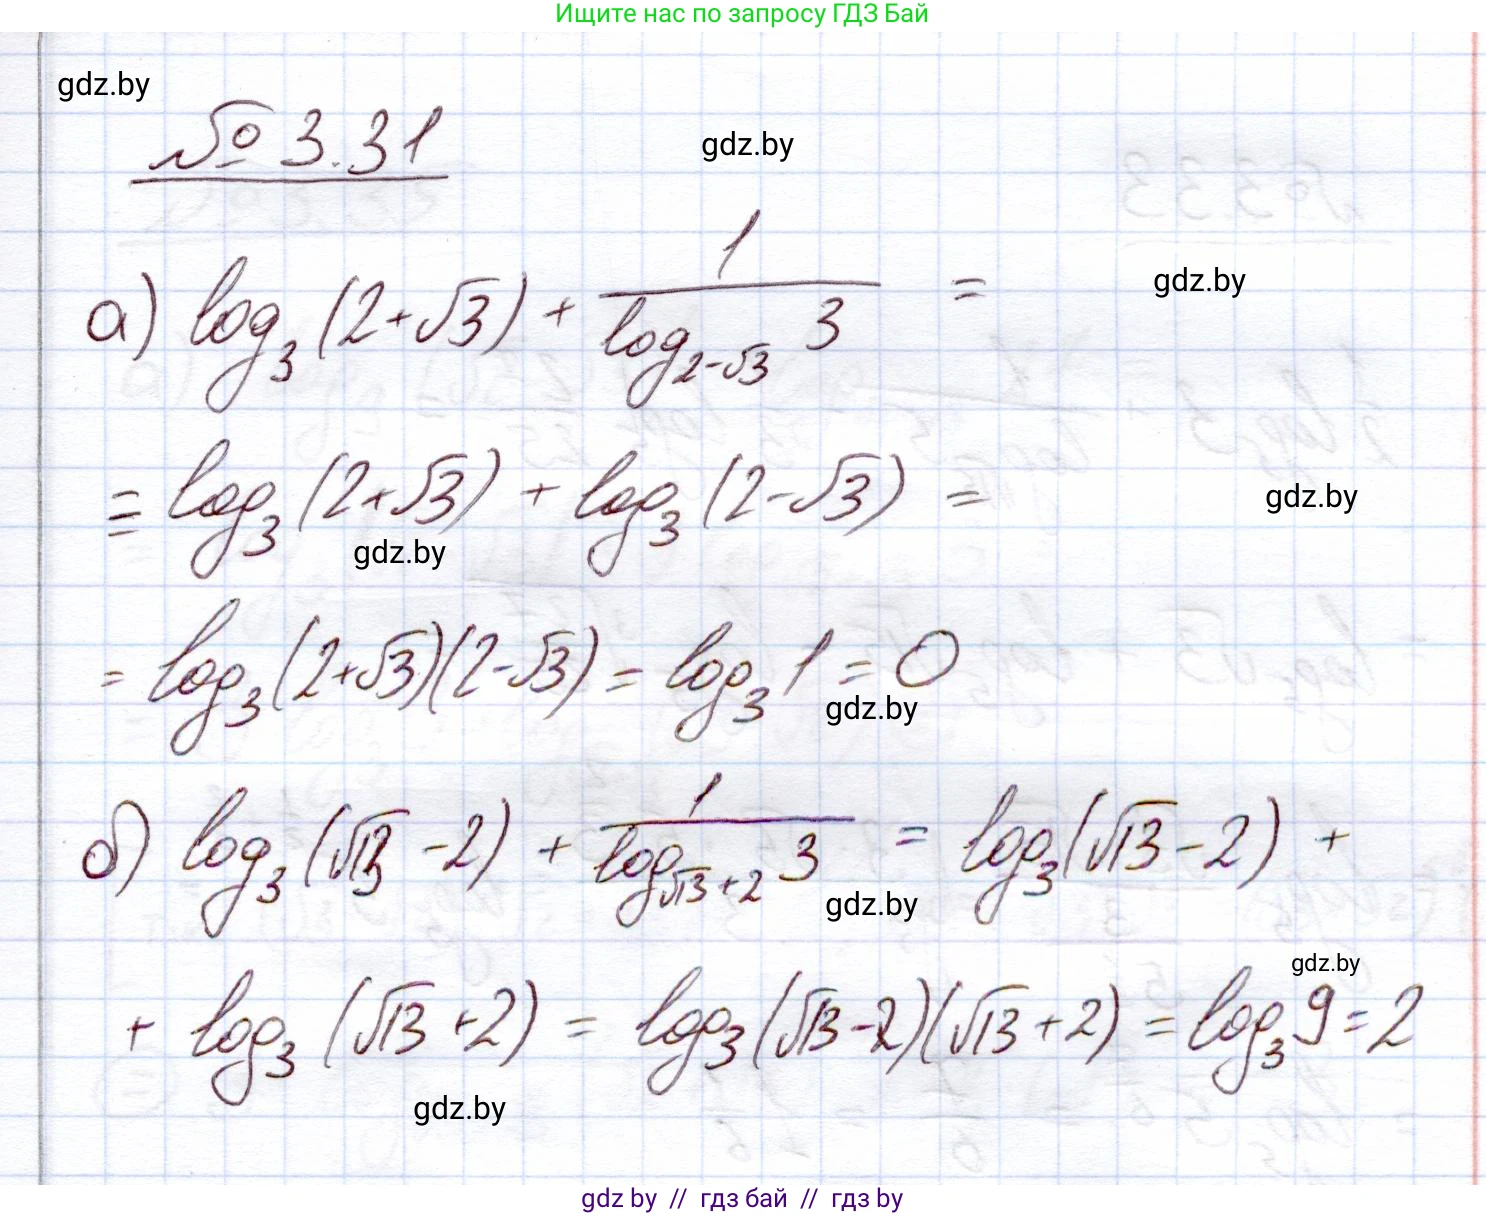 Ищите нас по запросу ГДЗ Бай
gdz.by
№ 3.31
gdz.by
а) log₃(2+√3) + 1/(log_{2-√3} 3) =
gdz.by
= log₃(2+√3) + log₃(2-√3) =
gdz.by
gdz.by
= log₃(2+√3)(2-√3) = log₃1 = 0
gdz.by
б) log₃(√13 -2) + 1/(log_{√13+2} 3) = log₃(√13-2) +
gdz.by
gdz.by
+ log₃(√13+2) = log₃(√13-2)(√13+2) = log₃9=2
gdz.by
gdz by // гдз бай // гдз by